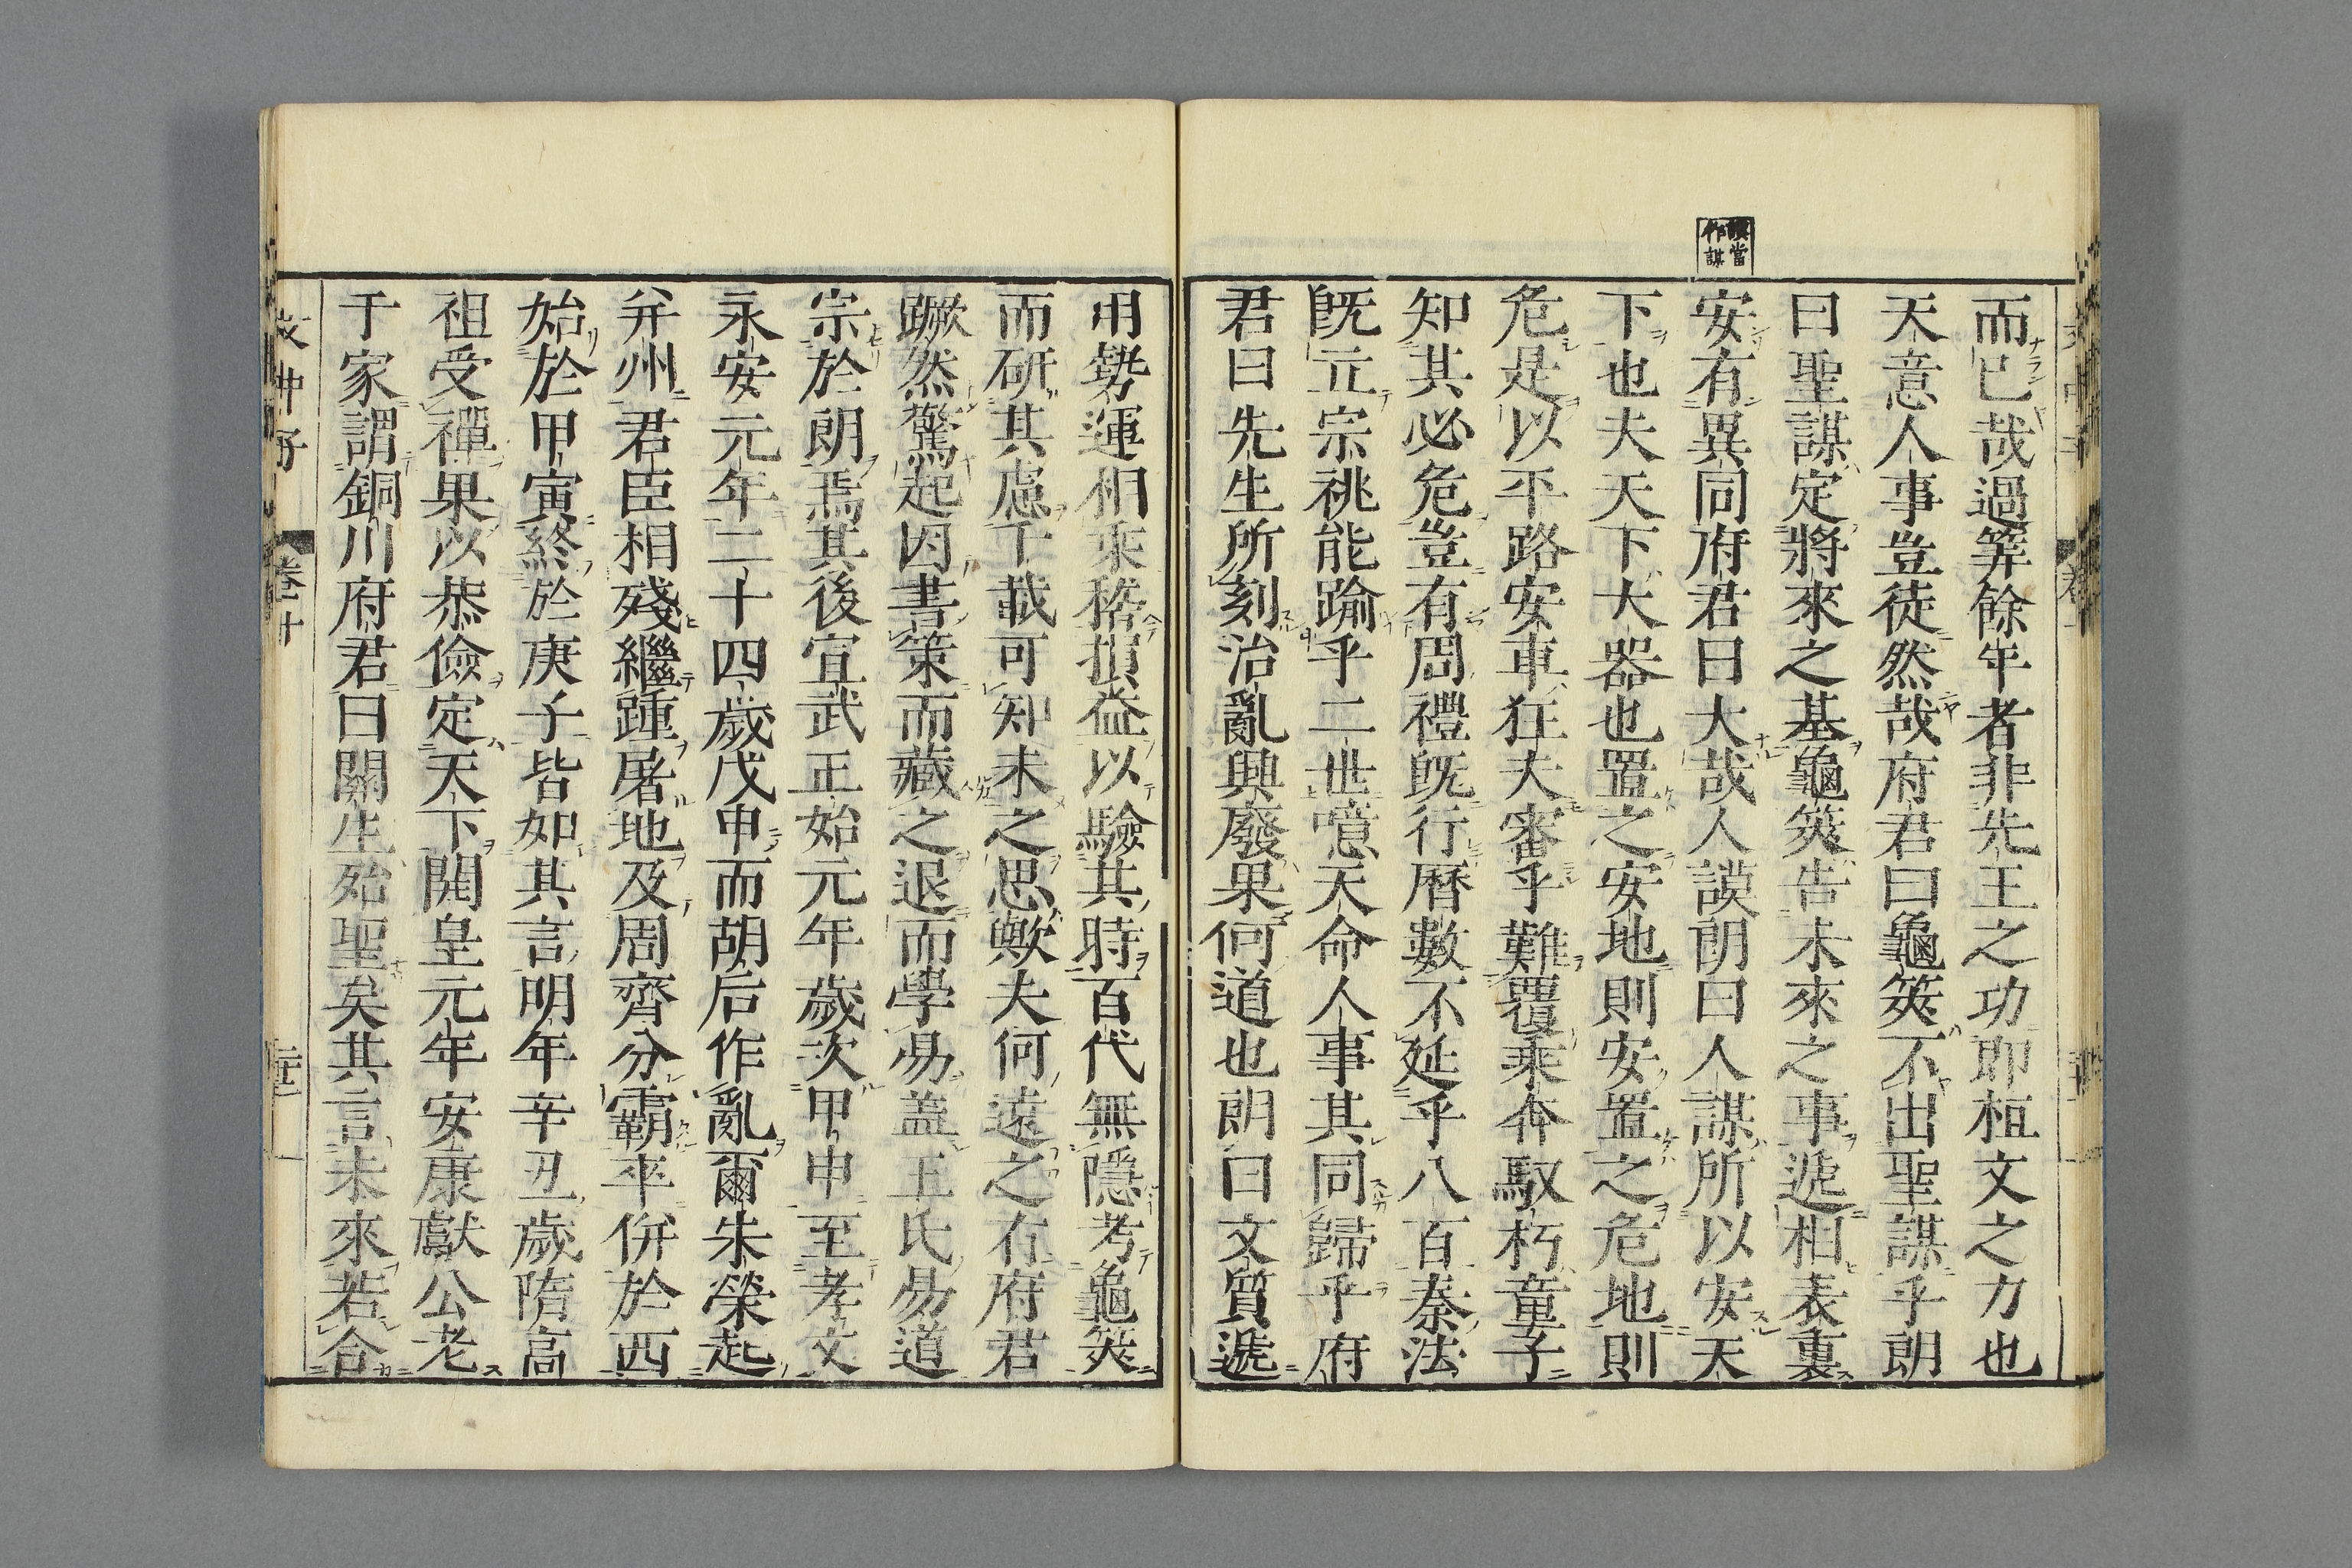 謨當
作謀
而已哉過筭餘年者非先王之功即桓文之力也
天意人事豈徒然哉府君曰龜筴不出聖謀乎朗
曰聖謀定將來之基龜筴告未來之事遞相表裏
安有異同府君曰大哉人謨朗曰人謀所以安天
下也夫天下大器也置之安地則安置之危地則
危是以平路安車狂夫審乎難覆乘奔馭朽童子
知其必危豈有周禮既行曆數不延乎八百秦法
既立宗祧能踰乎二世噫天命人事其同歸乎府
君曰先生所刻治亂興廢果何道也朗曰文質遞
用勢運相乘稽損益以驗其時百代無隱考龜筴
而研其慮千載可知未之思歟夫何遠之有府君
蹶然驚起因書策而藏之退而學易蓋王氏易道
宗於朗焉其後宣武正始元年歲次甲申至孝文
永安元年二十四歲戊申而胡后作亂爾朱榮起
并州君臣相殘繼踵屠地及周齊分霸卒併於西
始於甲寅終於庚子皆如其言明年辛丑歲隋高
祖受禪果以恭儉定天下開皇元年安康獻公老
于家謂銅川府君曰關生殆聖矣其言未來若合
文中子 卷十